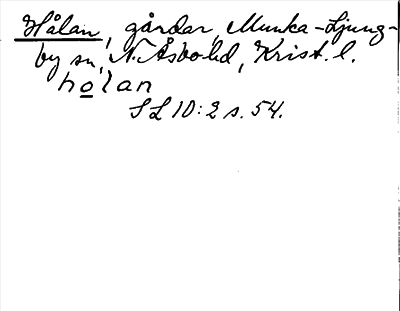 Hålan, gårdar, Munka-Ljung-
by sn, N. Åsbo hd, Krist. l.
holan
SL 10:2 s. 54.